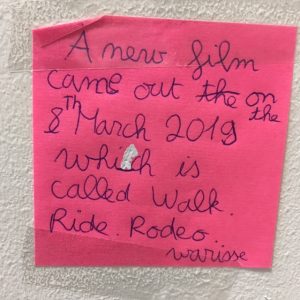 A new film
came out the on
8th March 2019 the
which is
called Walk.
Ride. Rodeo..
warisse